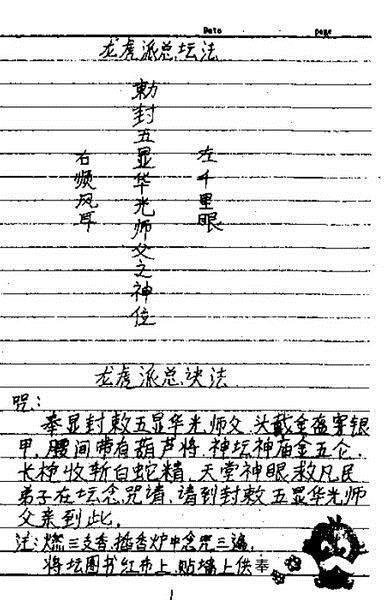 Date page
龙虎派总坛法
勅封五显华光师父之神位
左千里眼
右顺风耳
龙虎派总诀法
咒:
奉显封敕五显华光师父.头戴金盔穿银
甲.腰间带有葫芦将.神坛神庙金五仑.
长枪收斩白蛇精.天堂神眼救凡民
弟子在坛念咒请.请到封敕五显华光师
父亲到此.
注:燃三支香.插香炉中念咒三遍.
将坛图书红布上.贴墙上供奉
1